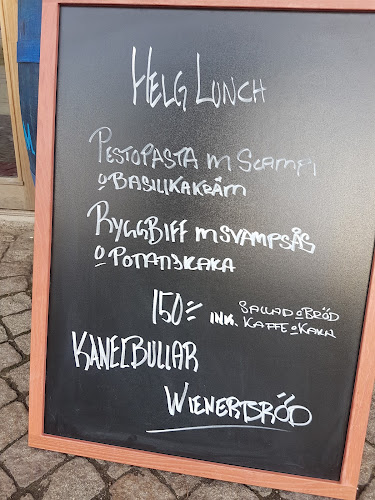 HELG LUNCH
PESTOPASTA M SCAMPI
O BASILIKAKRÄM
RYGGBIFF M SVAMPSÅS
O POTATISKAKA
150:-
INK. SALLAD O BRÖD
KAFFE O KAKA
KANELBULLAR
WIENERBRÖD